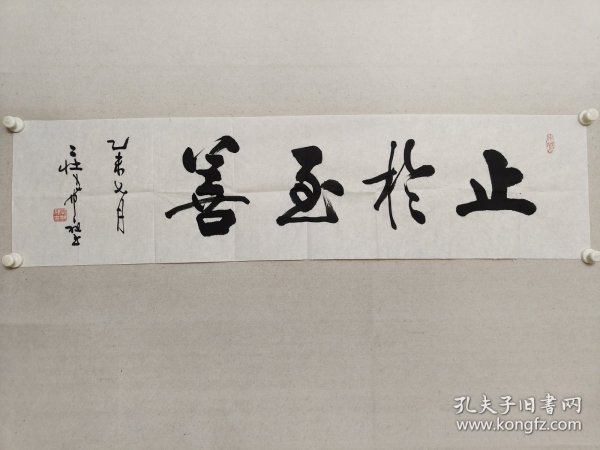 止於至善
乙未七月
孔夫子旧書网
www.kongfz.com